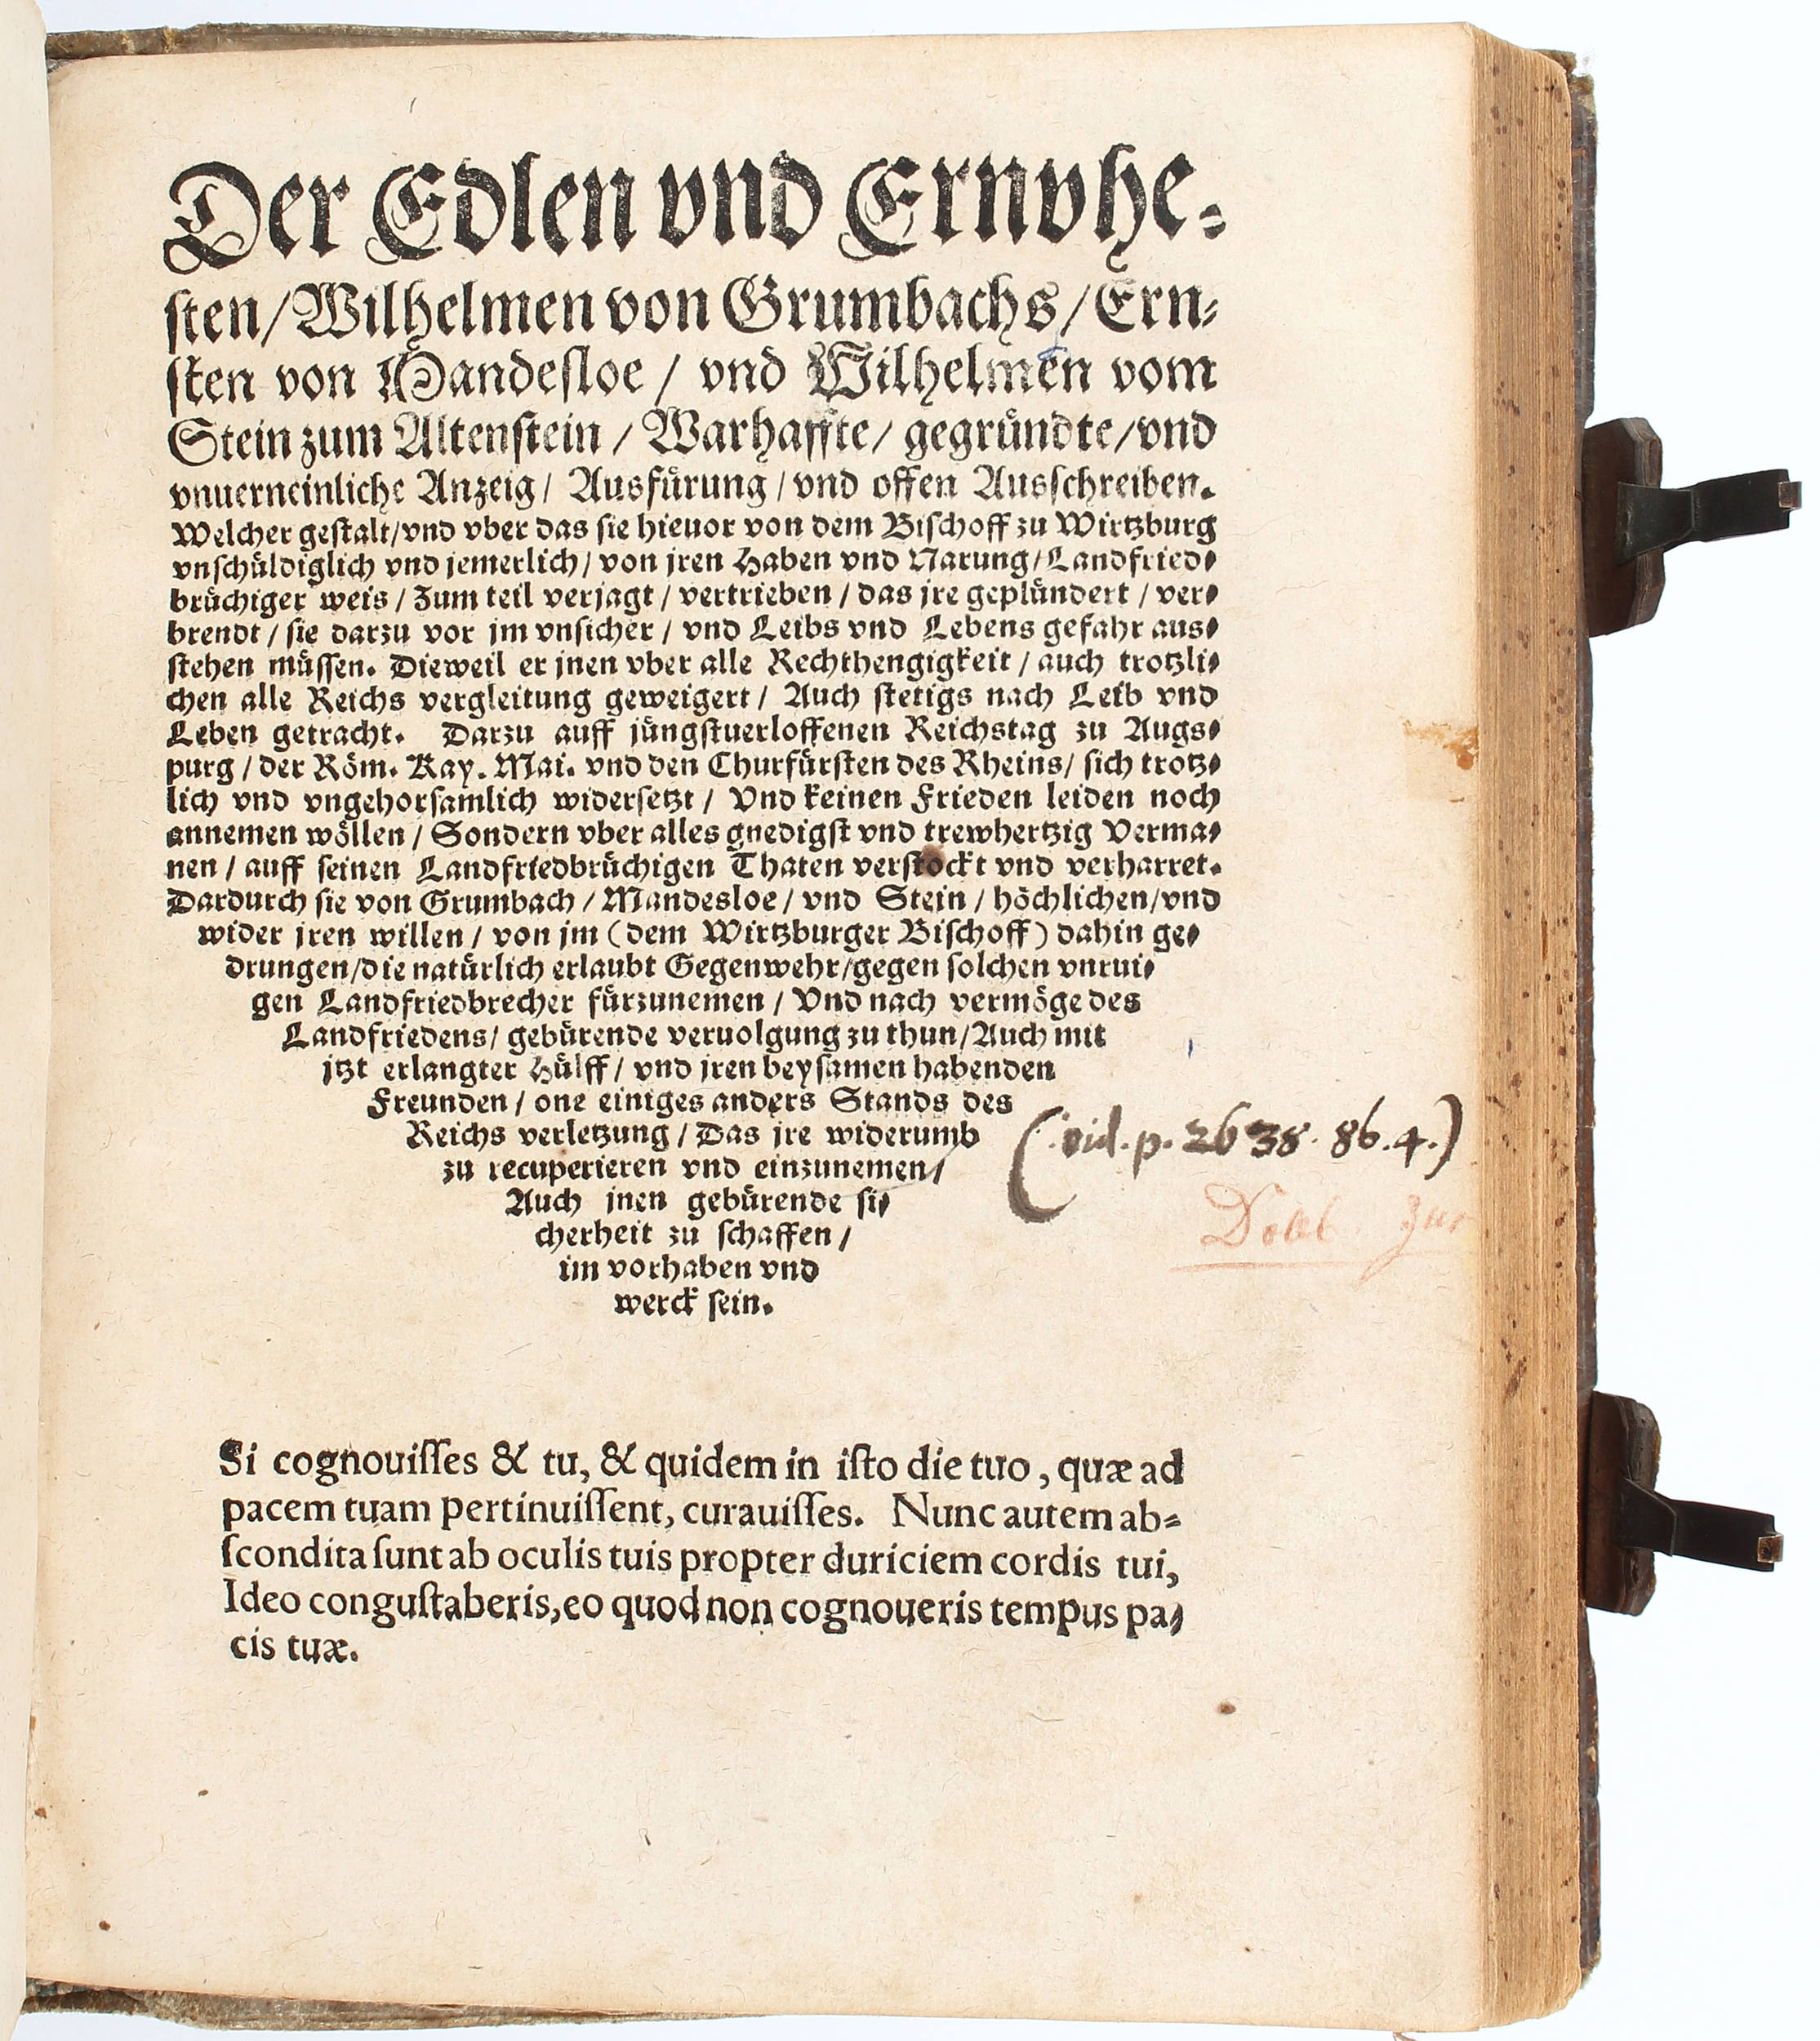 Der Edlen vnd Ernvhe⸗
sten / Wilhelmen von Grumbachs / Ern⸗
sten von Mandesloe / vnd Wilhelmen vom
Stein zum Altenstein / Warhaffte / gegründte / vnd
vnuerneinliche Anzeig / Ausfürung / vnd offen Ausschreiben.
Welcher gestalt / vnd vber das sie hieuor von dem Bischoff zu Wirtzburg
vnschüldiglich vnd jemerlich / von jren Haben vnd Narung / Landfried⸗
brüchiger weis / Zum teil verjagt / vertrieben / das jre geplündert / ver⸗
brendt / sie darzu vor jm vnsicher / vnd Leibs vnd Lebens gefahr aus⸗
stehen müssen. Dieweil er jnen vber alle Rechthengigkeit / auch trotzli⸗
chen alle Reichs vergleitung geweigert / Auch stetigs nach Leib vnd
Leben getracht. Darzu auff jüngstuerloffenen Reichstag zu Augs⸗
purg / der Röm. Kay. Mai. vnd den Churfürsten des Rheins / sich trotz⸗
lich vnd vngehorsamlich widersetzt / Vnd keinen Frieden leiden noch
annemen wöllen / Sondern vber alles gnedigst vnd trewhertzig Verma⸗
nen / auff seinen Landfriedbrüchigen Thaten verstockt vnd verharret.
Dardurch sie von Grumbach / Mandesloe / vnd Stein / höchlichen / vnd
wider jren willen / von jm (dem Wirtzburger Bischoff) dahin ge⸗
drungen / die natürlich erlaubt Gegenwehr / gegen solchen vnrui⸗
gen Landfriedbrecher fürzunemen / Vnd nach vermöge des
Landfriedens / gebürende veruolgung zu thun / Auch mit
jtzt erlangter Hülff / vnd jren beysamen habenden
Freunden / one einiges anders Stands des
Reichs verletzung / Das jre widerumb
zu recuperieren vnd einzunemen /
Auch jnen gebürende si⸗
cherheit zu schaffen /
im vorhaben vnd
werck sein.
(vid. p. 2638. 86. 4.)
Si cognouisses & tu, & quidem in isto die tuo, quæ ad
pacem tuam pertinuissent, curauisses. Nunc autem ab⸗
scondita sunt ab oculis tuis propter duriciem cordis tui,
Ideo congustaberis, eo quod non cognoueris tempus pa⸗
cis tuæ.